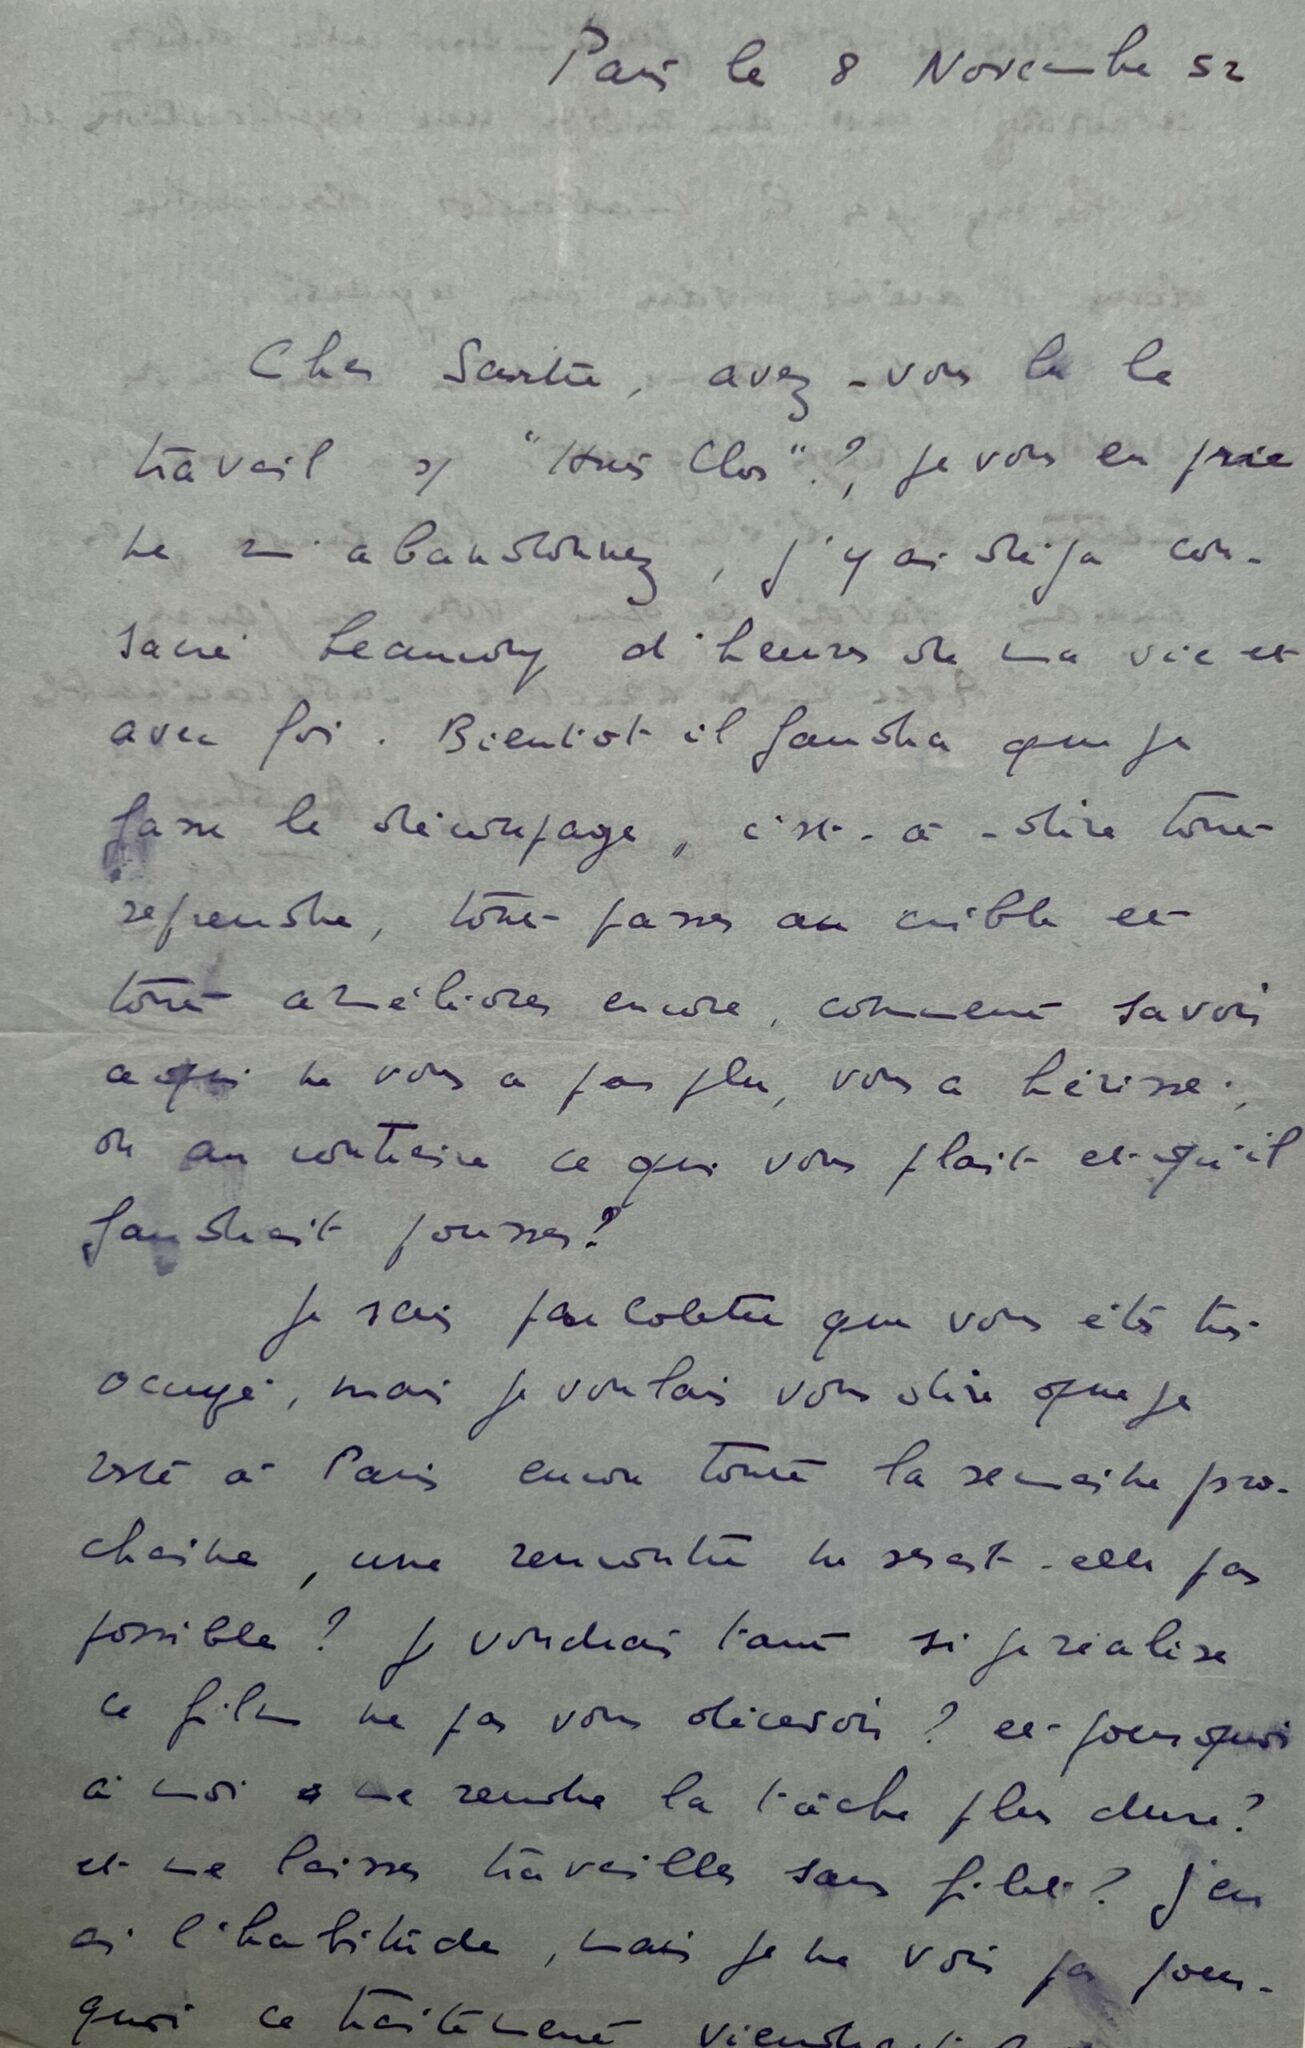 Paris le 8 Novembre 52
Cher Sartre, avez-vous lu le
travail s/ "Huis Clos"?, je vous en prie
ne m'abandonnez, j'y ai déja con-
sacré beaucoup d'heures de ma vie et
avec foi. Bientot il faudra que je
fasse le découpage, c'est-à-dire tout
reprendre, tout passer au crible et
tout améliorer encore, comment savoir
ce qui ne vous a pas plu, vous a hérissé,
ou au contraire ce qui vous plait et qu'il
faudrait pousser?
Je sais par Colette que vous êtes très
occupé, mais je voulais vous dire que je
reste à Paris encore toute la semaine pro-
chaine, une rencontre ne serait-elle pas
possible? Je voudrais tant si je réalise
ce film ne pas vous décevoir? et pourquoi
à moi me rendre la tâche plus dure?
et me laisser travailler sans filet? J'en
ai l'habitude, mais je ne vois pas pour-
quoi ce traitement